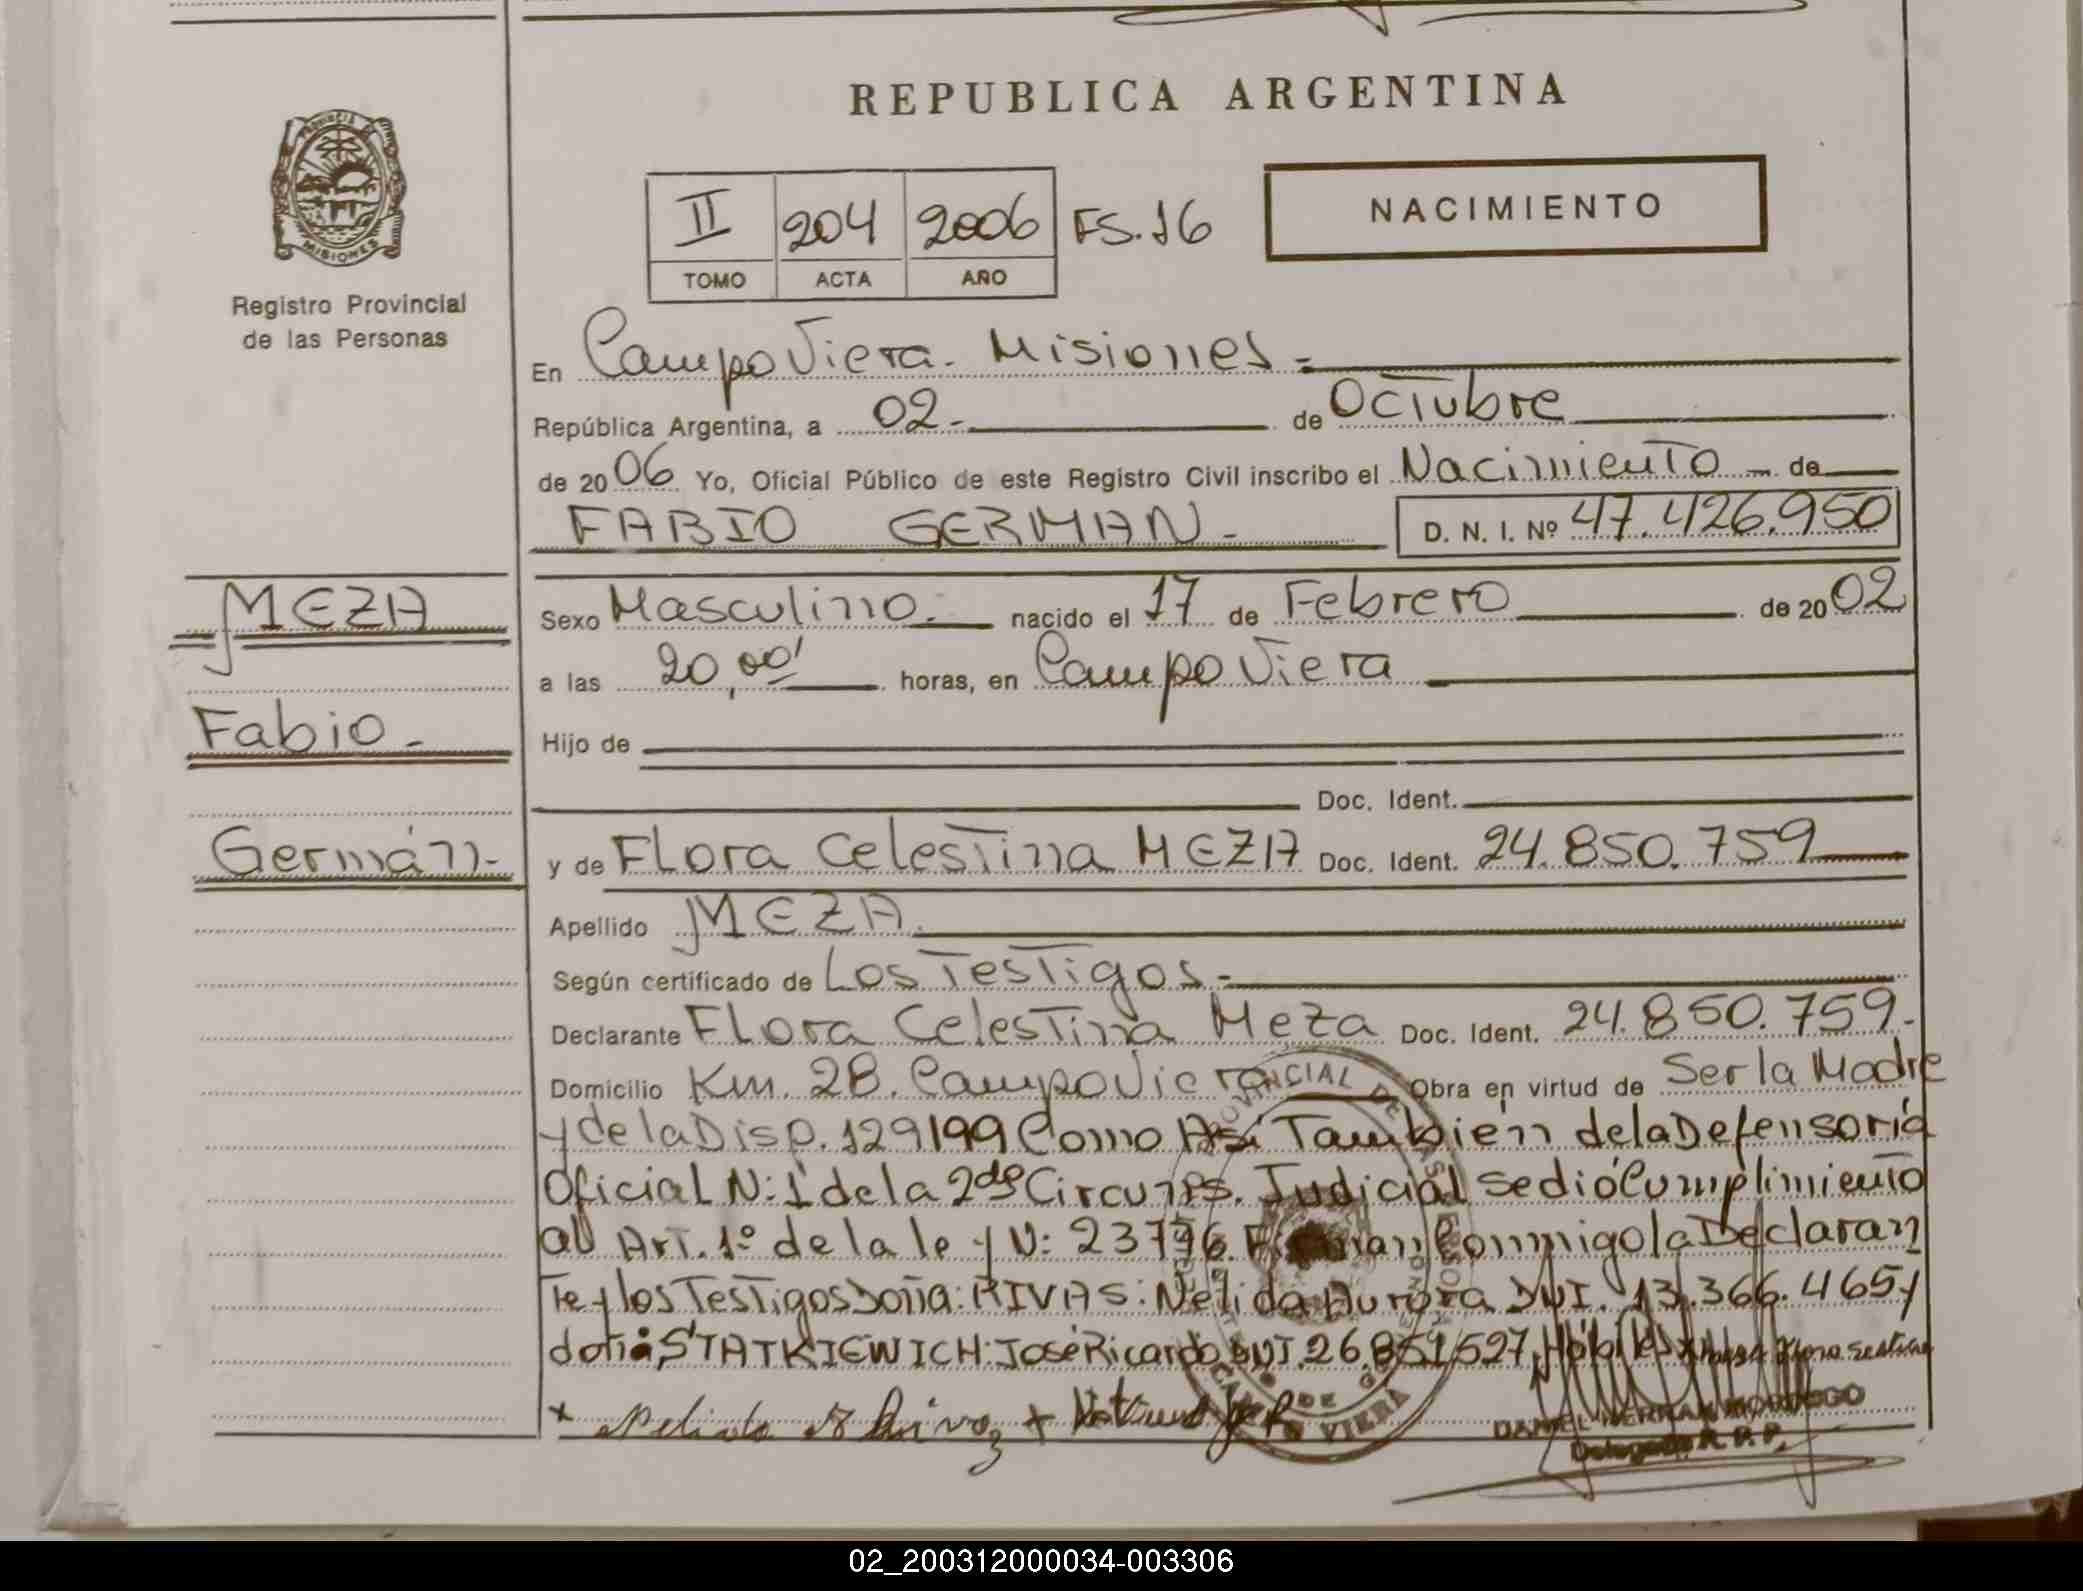 REPUBLICA ARGENTINA
PROVINCIA DE
MISIONES
Registro Provincial
de las Personas
II 204 2006 FS.16
TOMO ACTA AÑO
NACIMIENTO
En Campo Viera - Misiones -
República Argentina, a 02 - de Octubre
de 2006 Yo, Oficial Público de este Registro Civil inscribo el Nacimiento de
FABIO GERMAN - D. N. I. Nº 47.426.950
MEZA
Fabio -
Germán -
Sexo Masculino. nacido el 17 de Febrero de 2002
a las 20,00' horas, en Campo Viera
Hijo de
Doc. Ident.
y de Flora Celestina MEZA Doc. Ident. 24.850.759
Apellido MEZA
Según certificado de Los Testigos -
Declarante Flora Celestina Meza Doc. Ident. 24.850.759 -
Domicilio Km. 28. Campo Viera Obra en virtud de Ser la Madre
y de la Disp. 129199 Como Así Tambien de la Defensoria
Oficial N: 1 de la 2da Circunps. Judicial se dió Cumplimiento
al Art. 1º de la le y N: 23776. Firman Conmigo la Declaran
Te y los Testigos Doña: RIVAS: Nelida Aurora DNI. 13.366.465 y
doña STATKIEWICH: José Ricardo DNI. 26.851.527, Hábiles
DANIEL HERNAN
Delegado R. P. P.
CAMPO VIERA
02_200312000034-003306